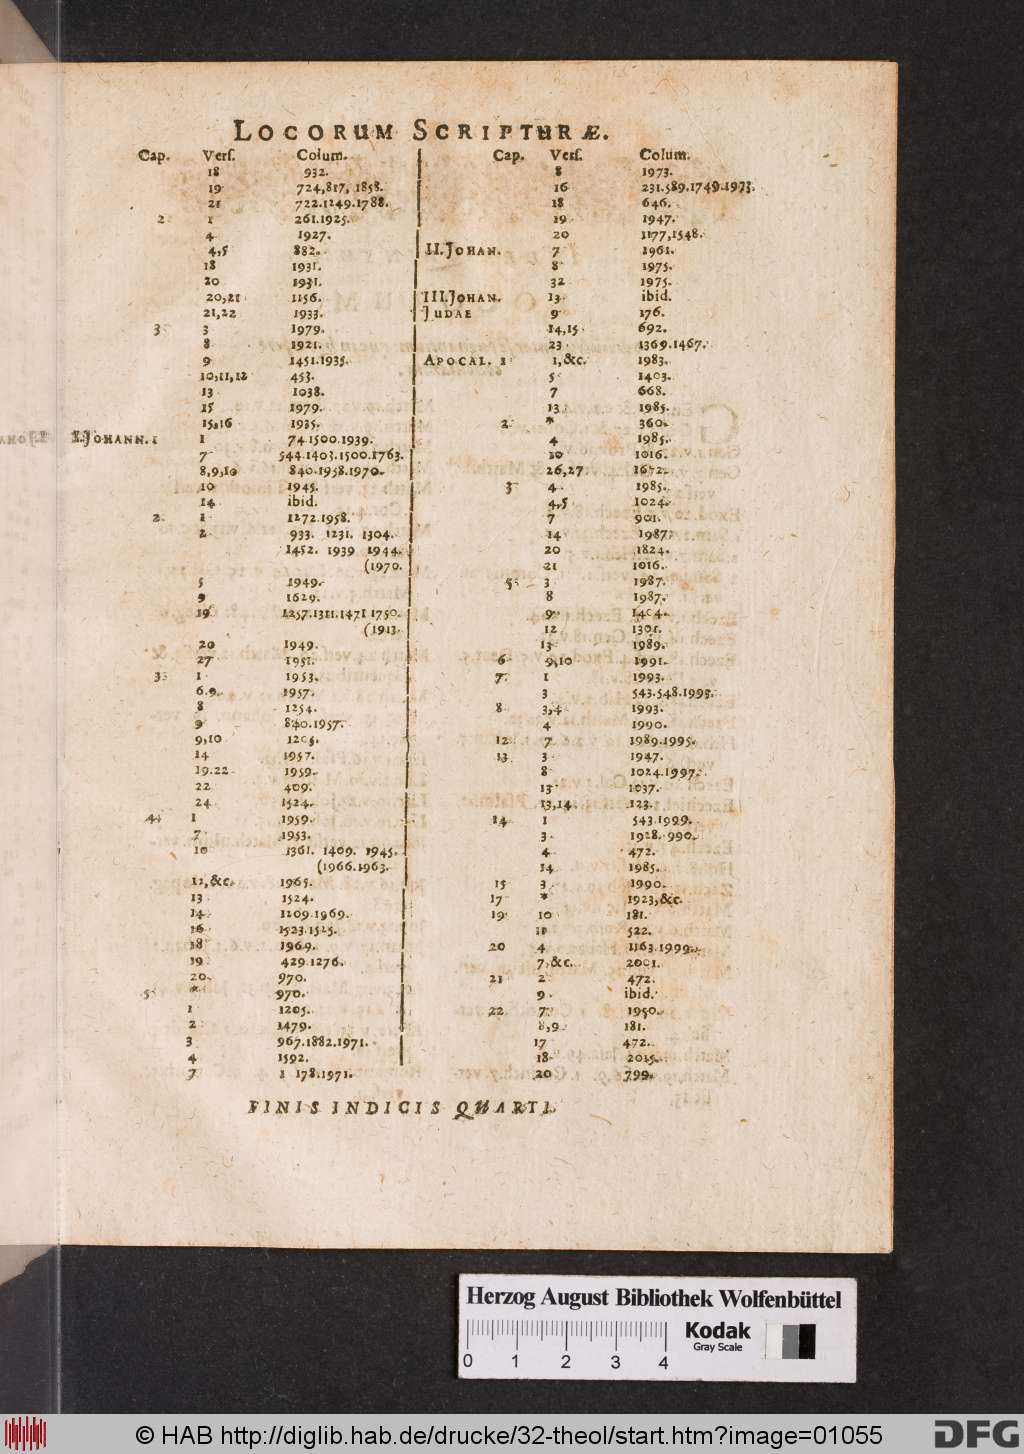 LOCORUM SCRIPTURÆ.
Cap. Vers. Colum.
18 932.
19 724,817, 1858.
21 722.1249.1788.
2 1 261.1925.
4 1927.
4,5 882.
18 1931.
20 1931.
20,21 1156.
21,22 1933.
3 3 1979.
8 1921.
9 1451.1935.
10,11,12 453.
13 1038.
15 1979.
15,16 1935.
I.JOHANN.1 1 74.1500.1939.
7 544.1403.1500.1763.
8,9,10 840.1958.1970.
10 1945.
14 ibid.
2 1 1272.1958.
2 933. 1231. 1304.
1452. 1939 1944.
(1970.
5 1949.
9 1629.
19 1257.1311.1471 1750.
(1913.
20 1949.
27 1951.
3 1 1953.
6.9. 1957.
8 1254.
9 840.1957.
9,10 1205.
14 1957.
19.22 1959.
22 409.
24 1524.
4 1 1959.
7 1953.
10 1361. 1409. 1945.
(1966.1963.
11,&c. 1965.
13 1524.
14 1209.1969.
16 1523.1525.
18 1969.
19 429.1276.
20 970.
5 * 970.
1 1205.
2 1479.
3 967.1882.1971.
4 1592.
7 1 178.1971.
Cap. Vers. Colum.
8 1973.
16 231.589.1749.1973.
18 646.
19 1947.
20 1177,1548.
II.JOHAN. 7 1961.
8 1975.
32 1975.
III.JOHAN. 13 ibid.
JUDAE 9 176.
14,15 692.
23 1369.1467.
APOCAL. 1 1,&c. 1983.
5 1403.
7 668.
13 1985.
2 * 360.
4 1985.
10 1016.
26,27 1672.
3 4 1985.
4,5 1024.
7 901.
14 1987.
20 1824.
21 1016.
5 3 1987.
8 1987.
9 1404.
12 1301.
13 1989.
6 9,10 1991.
7 1 1993.
3 543.548.1995.
8 3,4 1993.
4 1990.
12 7 1989.1995.
13 3 1947.
8 1024.1997.
13 1037.
13,14 123.
14 1 543.1999.
3 1928. 990.
4 472.
14 1985.
15 3 1990.
17 * 1923,&c.
19 10 181.
11 522.
20 4 1163.1999.
7,&c. 2001.
21 2 472.
9 ibid.
22 7 1950.
8,9 181.
17 472.
18 2015.
20 799.
FINIS INDICIS QUARTI.
Herzog August Bibliothek Wolfenbüttel
0 1 2 3 4
Kodak
Gray Scale
© HAB http://diglib.hab.de/drucke/32-theol/start.htm?image=01055
DFG